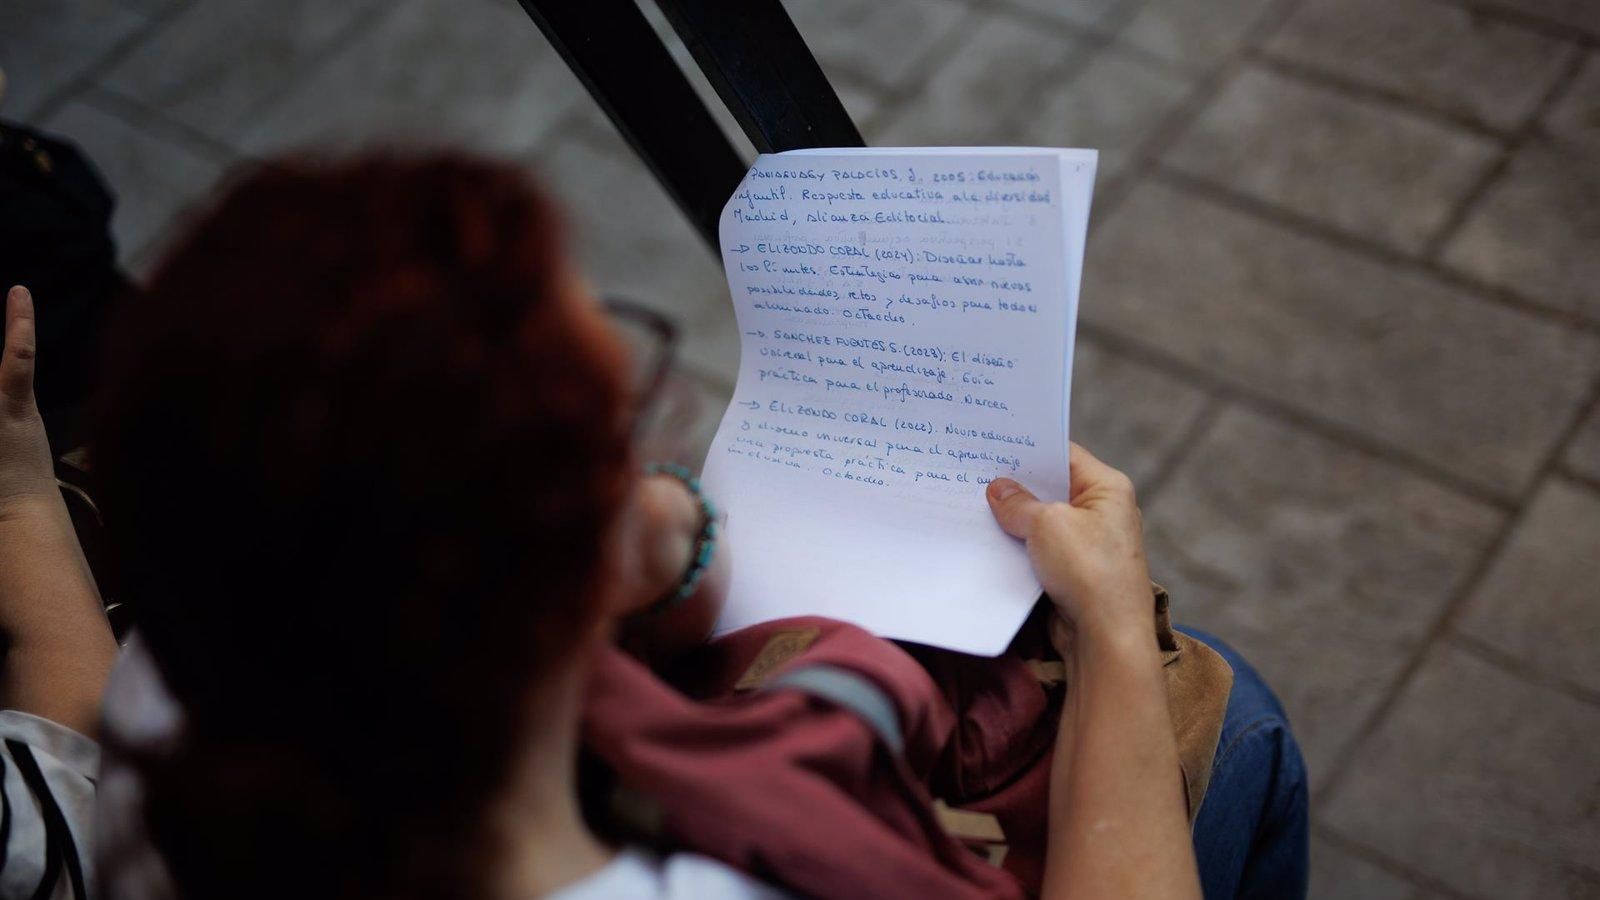 PANIAGUA Y PALACIOS, J. 2005: Educación
infantil. Respuesta educativa a la diversidad
Madrid, Alianza Editorial.
→ ELIZONDO CORAL (2024): Diseñar hasta
los límites. Estrategias para abrir nuevas
posibilidades, retos y desafíos para todo el
alumnado. Octaedro.
→ SANCHEZ FUENTES S. (2023): El diseño
Universal para el aprendizaje. Guía
práctica para el profesorado. Narcea.
→ ELIZONDO CORAL (2022). Neuroeducación
y diseño universal para el aprendizaje.
una propuesta práctica para el
inclusiva. Octaedro.